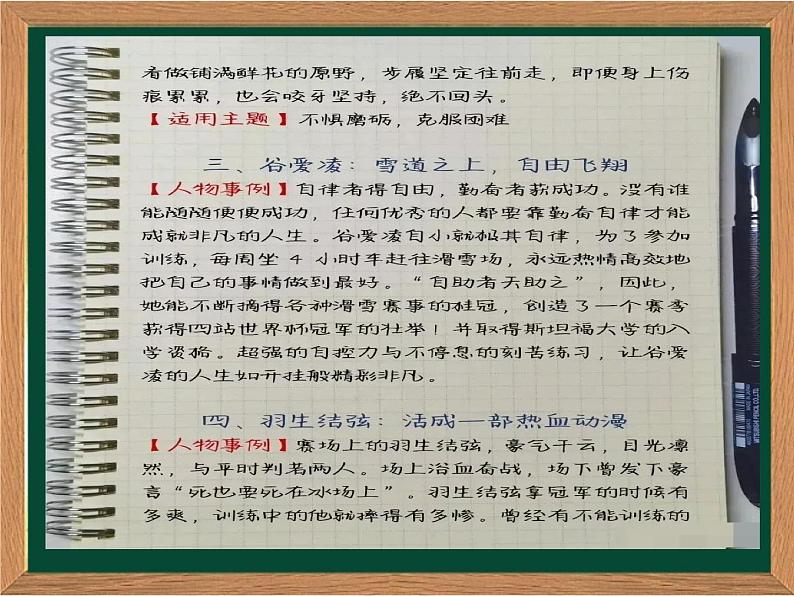 看做铺满鲜花的原野，步履坚定往前走，即便身上伤
痕累累，也会咬牙坚持，绝不回头。
【适用主题】不惧磨砺，克服困难
三、谷爱凌：雪道之上，自由飞翔
【人物事例】自律者得自由，勤奋者获成功。没有谁
能随随便便成功，任何优秀的人都要靠勤奋自律才能
成就非凡的人生。谷爱凌自小就极其自律，为了参加
训练，每周坐 4 小时车赶往滑雪场，永远热情高效地
把自己的事情做到最好。“自助者天助之”，因此，
她能不断摘得各种滑雪赛事的桂冠，创造了一个赛季
获得四站世界杯冠军的壮举！并取得斯坦福大学的入
学资格。超强的自控力与不停息的刻苦练习，让谷爱
凌的人生如开挂般精彩非凡。
四、羽生结弦：活成一部热血动漫
【人物事例】赛场上的羽生结弦，豪气干云，目光凛
然，与平时判若两人。场上浴血奋战，场下曾发下豪
言“死也要死在冰场上”。羽生结弦享冠军的时候有
多爽，训练中的他就摔得有多惨。曾经有不能训练的
MITSUBISHI PENCIL